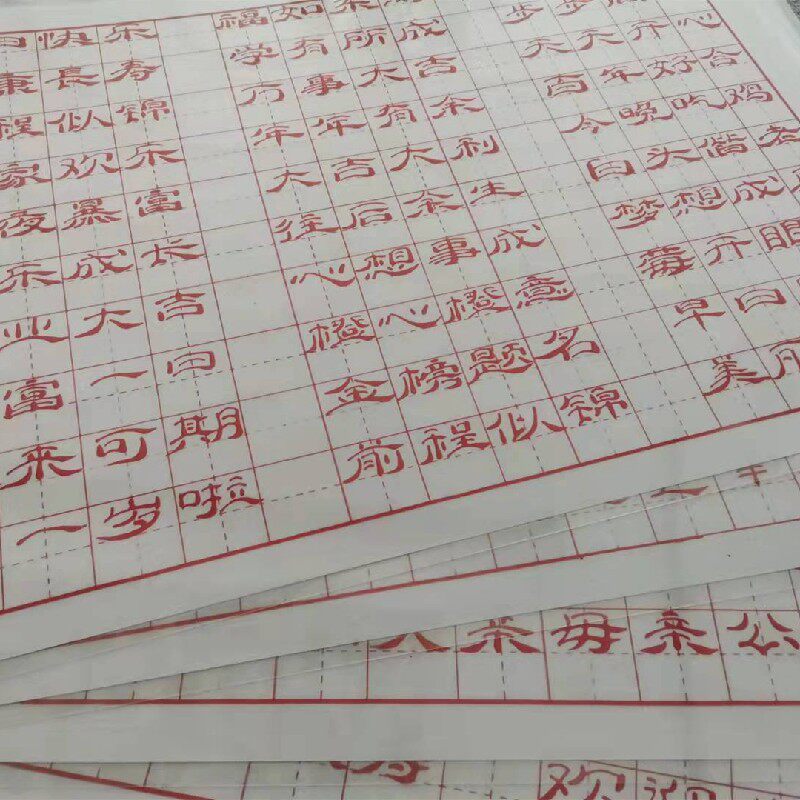 日快乐
康長寿
程似锦
家欢乐
夜暴富
乐成长
业大吉
富一日
来可期
一岁啦
福如东
学有所成
万事大吉
年年有余
大吉大利
往后余生
心想事成
橙心橙意
金榜题名
前程似锦
步步
天天开心
百年好合
今晚吃鸡
白头偕老
梦想成
莓开眼
早日
美
亲毋亲公
欢迎